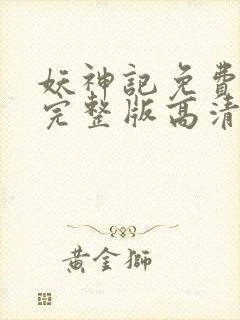 妖神記免費
完整版高清
黃金獅